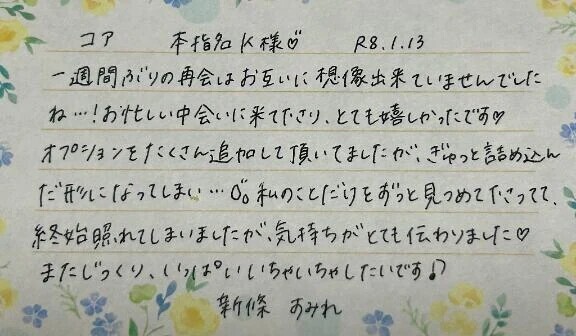 コア 本指名K様♡ R8.1.13
一週間ぶりの再会はお互いに想像出来ていませんでした
ね…!お忙しい中会いに来て下さり、とても嬉しかったです♡
オプションをたくさん追加して頂いてましたが、ぎゅっと詰め込ん
だ形になってしまい…💦私のことだけをずっと見つめて下さってて、
終始照れてしまいましたが、気持ちがとても伝わりました♡
またじっくり、いっぱいいちゃいちゃしたいです♪
新條 すみれ